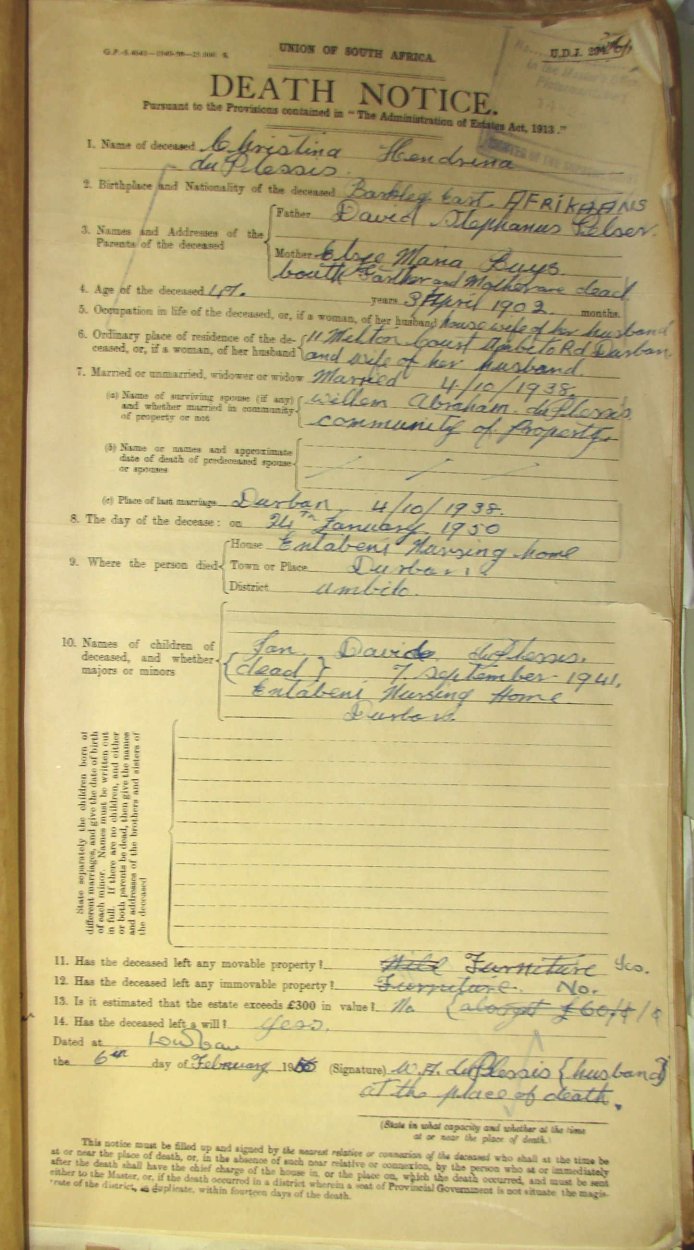 UNION OF SOUTH AFRICA.
U.D.J.
DEATH NOTICE.
Pursuant to the Provisions contained in "The Administration of Estates Act, 1913."
1. Name of deceased Christina Hendrina
du Plessis.
2. Birthplace and Nationality of the deceased Barkley East. AFRIKAANS
3. Names and Addresses of the Parents of the deceased
Father David Stephanus Pelser.
Mother Elsje Maria Buys.
bouth Farther and Mother are dead
4. Age of the deceased 47. years 3 April 1902. months.
5. Occupation in life of the deceased, or, if a woman, of her husband housewife of her husband
6. Ordinary place of residence of the deceased, or, if a woman, of her husband
11 Melton Court Umbilo Rd Durban
and wife of her husband.
7. Married or unmarried, widower or widow Married 4/10/1938.
(a) Name of surviving spouse (if any) and whether married in community of property or not
Willem Abraham du Plessis
community of Property.
(b) Name or names and approximate date of death of predeceased spouse or spouses
(c) Place of last marriage Durban 4/10/1938.
8. The day of the decease: on 24th January 1950
9. Where the person died
House Entabeni Nursing home
Town or Place Durban
District Umbilo.
10. Names of children of deceased, and whether majors or minors
Jan Davide du Plessis.
{dead} 7 September 1941.
Entabeni Nursing Home
Durban
State separately the children born of
different marriages, and give the date of birth
of each minor. Names must be written out
in full. If there are no children, and either
or both parents be dead, then give the names
and addresses of the brothers and sisters of
the deceased
11. Has the deceased left any movable property? Furniture Yes.
12. Has the deceased left any immovable property? Furniture. No.
13. Is it estimated that the estate exceeds £300 in value? No
14. Has the deceased left a will? Yess.
Dated at
the 6th day of February 19 (Signature) W. A. du Plessis {husband}
at the place of death.
(State in what capacity and whether at the time
at or near the place of death.)
This notice must be filled up and signed by the nearest relative or connexion of the deceased who shall at the time be
at or near the place of death, or, in the absence of such near relative or connexion, by the person who at or immediately
after the death shall have the chief charge of the house in, or the place on, which the death occurred, and must be sent
either to the Master, or, if the death occurred in a district wherein a seat of Provincial Government is not situate the magis-
trate of the district, in duplicate, within fourteen days of the death.